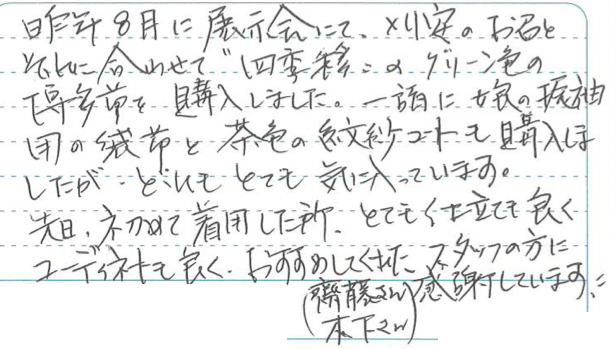 昨年8月に展示会にて、刈安のお召と
それに合わせて"四季彩"のグリーン色の
博多帯を購入しました。一緒に娘の振袖
用の袋帯と茶色の紋紗コートも購入しま
したが、どれもとても気に入っています。
先日、初めて着用した所、とても仕立ても良く
コーディネートも良く、おすすめしてくれた、スタッフの方に
(齋藤さん 木下さん)感謝しています。